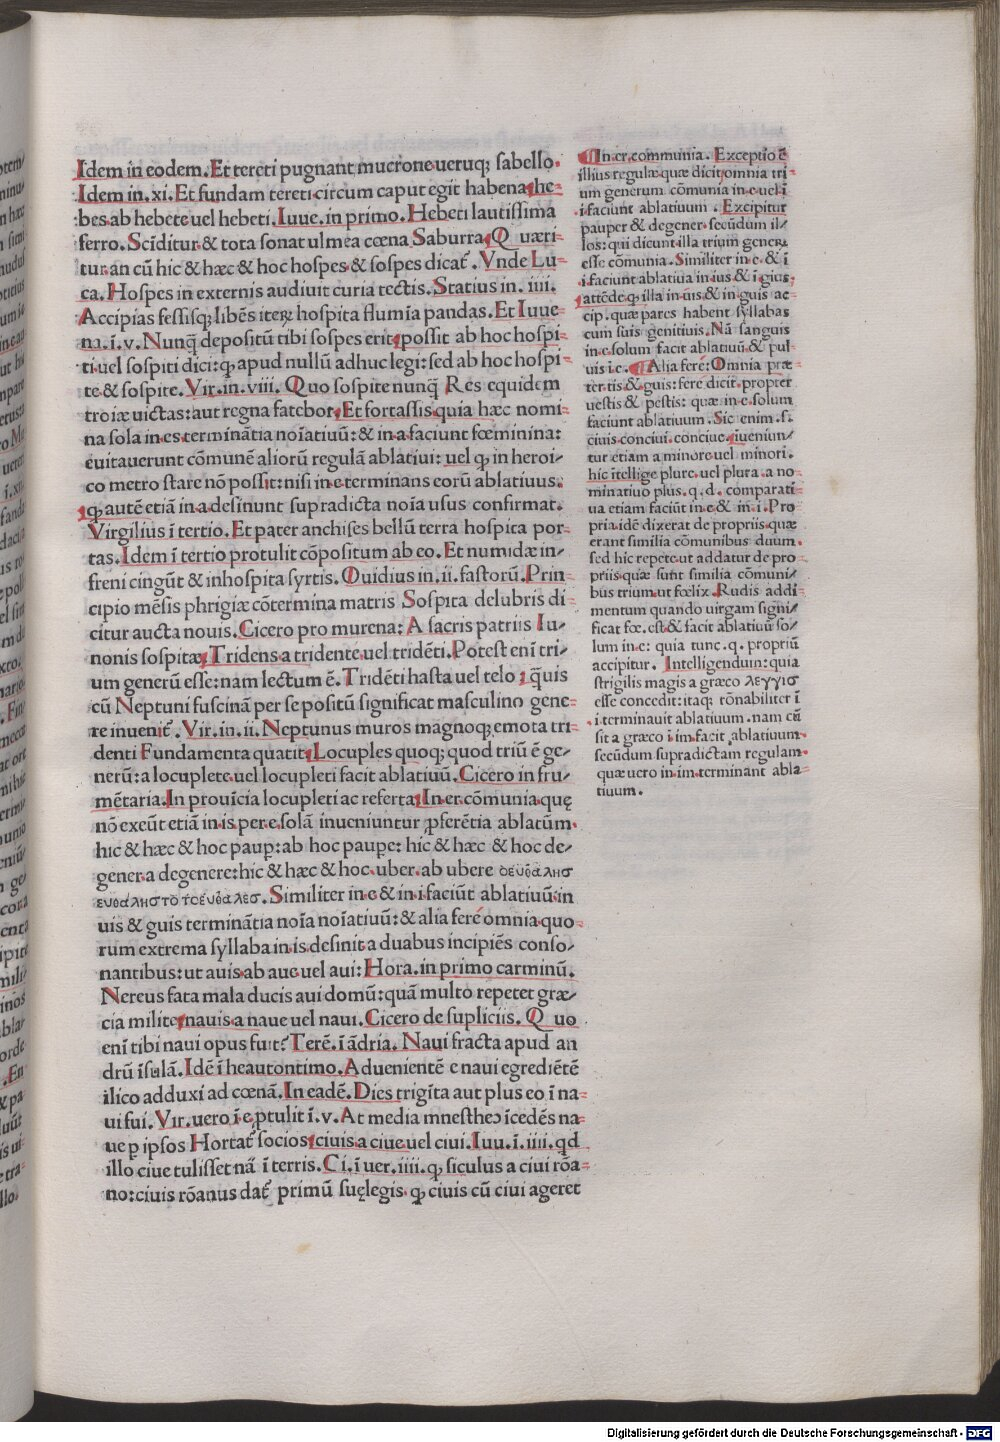 Idem in eodem. Et tereti pugnant mucrone ueruqꝫ sabello.
Idem in. xi. Et fundam tereti circum caput egit habena he-
bes ab hebete uel hebeti. Iuue. in primo. Hebeti lautissima
ferro. Scīditur & tota sonat ulmea cœna Saburra Quæri-
tur an cū hic & hæc & hoc hospes & sospes dicat᷑. Vnde Lu-
ca. Hospes in externis audiuit curia tectis. Statius in. iiii.
Accipias fessisqꝫ libēs iteꝝ hospita flumia pandas. Et Iuue-
na. i. v. Nunq̄ depositū tibi sospes erit possit ab hoc hospi-
ti uel sospiti dici: qꝫ apud nullū adhuc legi: sed ab hoc hospi-
te & sospite. Vir. in. viii. Quo sospite nunq̄ Res equidem
troiæ uictas: aut regna fatebor Et fortassis quia hæc nomi-
na sola in es terminātia noīatiuū: & in a faciunt fœminina:
euitauerunt cōmunē aliorū regulā ablatiui: uel qꝫ in heroi/
co metro stare nō possit: nisi in e terminans eorū ablatiuus.
qꝫ autē etiā in a desinunt supradicta noīa usus confirmat.
Virgilius ī tertio. Et pater anchises bellū terra hospita por-
tas. Idem ī tertio protulit cōpositum ab eo. Et numidæ in/
freni cingūt & inhospita syrtis. Ouidius in. ii. fastorū. Prin-
cipio mēsis phrigiæ cōtermina matris Sospita delubris di-
citur aucta nouis. Cicero pro murena: A sacris patriis Iu-
nonis sospitæ Tridens a tridente uel tridēti. Potest enī tri/
um generū esse: nam lectum ē. Tridēti hasta uel telo: q̄uis
cū Neptuni fuscinā per se positū significat masculino gene-
re inuenit᷑. Vir. in. ii. Neptunus muros magnoqꝫ emota tri-
denti Fundamenta quatit Locuples quoqꝫ quod triū ē ge/
nerū: a locuplete uel locupleti facit ablatiuū. Cicero in fru/
mētaria. In prouīcia locupleti ac referta In er cōmunia quę
nō exeūt etiā in is per e solā inueniuntur ꝓferētia ablatūm.
hic & hæc & hoc paup: ab hoc paupe: hic & hæc & hoc de/
gener a degenere: hic & hæc & hoc. uber. ab ubere οευθαλησ
ευθαλησ το τοευθαλεσ. Similiter in e & in i faciūt ablatiuū in
uis & guis terminātia noīa noīatiuū: & alia ferē omnia quo/
rum extrema syllaba in is desinit a duabus incipiēs conso/
nantibus: ut auis ab aue uel aui: Hora. in primo carminū.
Nereus fata mala ducis aui domū: quā multo repetet græ/
cia milite nauis a naue uel naui. Cicero de supliciis. Quo
enī tibi naui opus fuit? Terē. ī ādria. Naui fracta apud an
drū īsulā. Idē ī heautontimo. Aduenientē e naui egrediētē
ilico adduxi ad cœnā. In eadē. Dies trigīta aut plus eo ī na-
ui fui. Vir. uero ī e ꝓtulit ī. v. At media mnestheo īcedēs na-
ue p ipsos Hortat᷑ socios ciuis a ciue uel ciui. Iuu. ī. iiii. qd
illo ciue tulisset nā ī terris. Ci. ī uer. iiii. qꝫ siculus a ciui rōa-
no: ciuis rōanus dat᷑ primū suę legis qꝫ ciuis cū ciui ageret
In er. communia. Exceptio ē
illius regulæ quæ dicit omnia tri
um generum cōmunia in e uel ī
i faciunt ablatiuum. Excipitur
pauper & degener. secūdum il/
los: qui dicunt illa trium geneꝝ
esse cōmunia. Similiter in e. & ī
i faciunt ablatiua in ius & ī gius.
attēde qꝫ illa in uis & in guis ac-
cip. quæ pares habent syllabas
cum suis genitiuis. Nā sanguis
in e solum facit ablatiuū & pul
uis i e. Alia ferē: Omnia præ-
ter tis & guis: ferē dicit. propter
uestis & pestis: quæ in e solum
faciunt ablatiuum. Sic enim. f.
ciuis conciui. conciue. iueniun/
tur etiam a minore uel minori.
hic ītellige plure. uel plura. a no-
minatiuo plus. q. d. comparati-
ua etiam faciūt in e & in. i. Pro
pria idē dixerat de propriis quæ
erant similia cōmunibus duum.
sed hic repete ut addatur de pro
priis quæ sunt similia cōmuni/
bus trium ut fœlix. Rudis addi-
mentum quando uirgam signi/
ficat fœ. est & facit ablatiuū so/
lum in e: quia tunc. q. propriū
accipitur. Intelligendum: quia
strigilis magis a græco λεγγισ
esse concedit: itaqꝫ rōnabiliter ī
i terminauit ablatiuum. nam cū
sit a græco ī im facit ablatiuum
secūdum supradictam regulam.
quæ uero in im terminant abla-
tiuum.
Digitalisierung gefördert durch die Deutsche Forschungsgemeinschaft - DFG